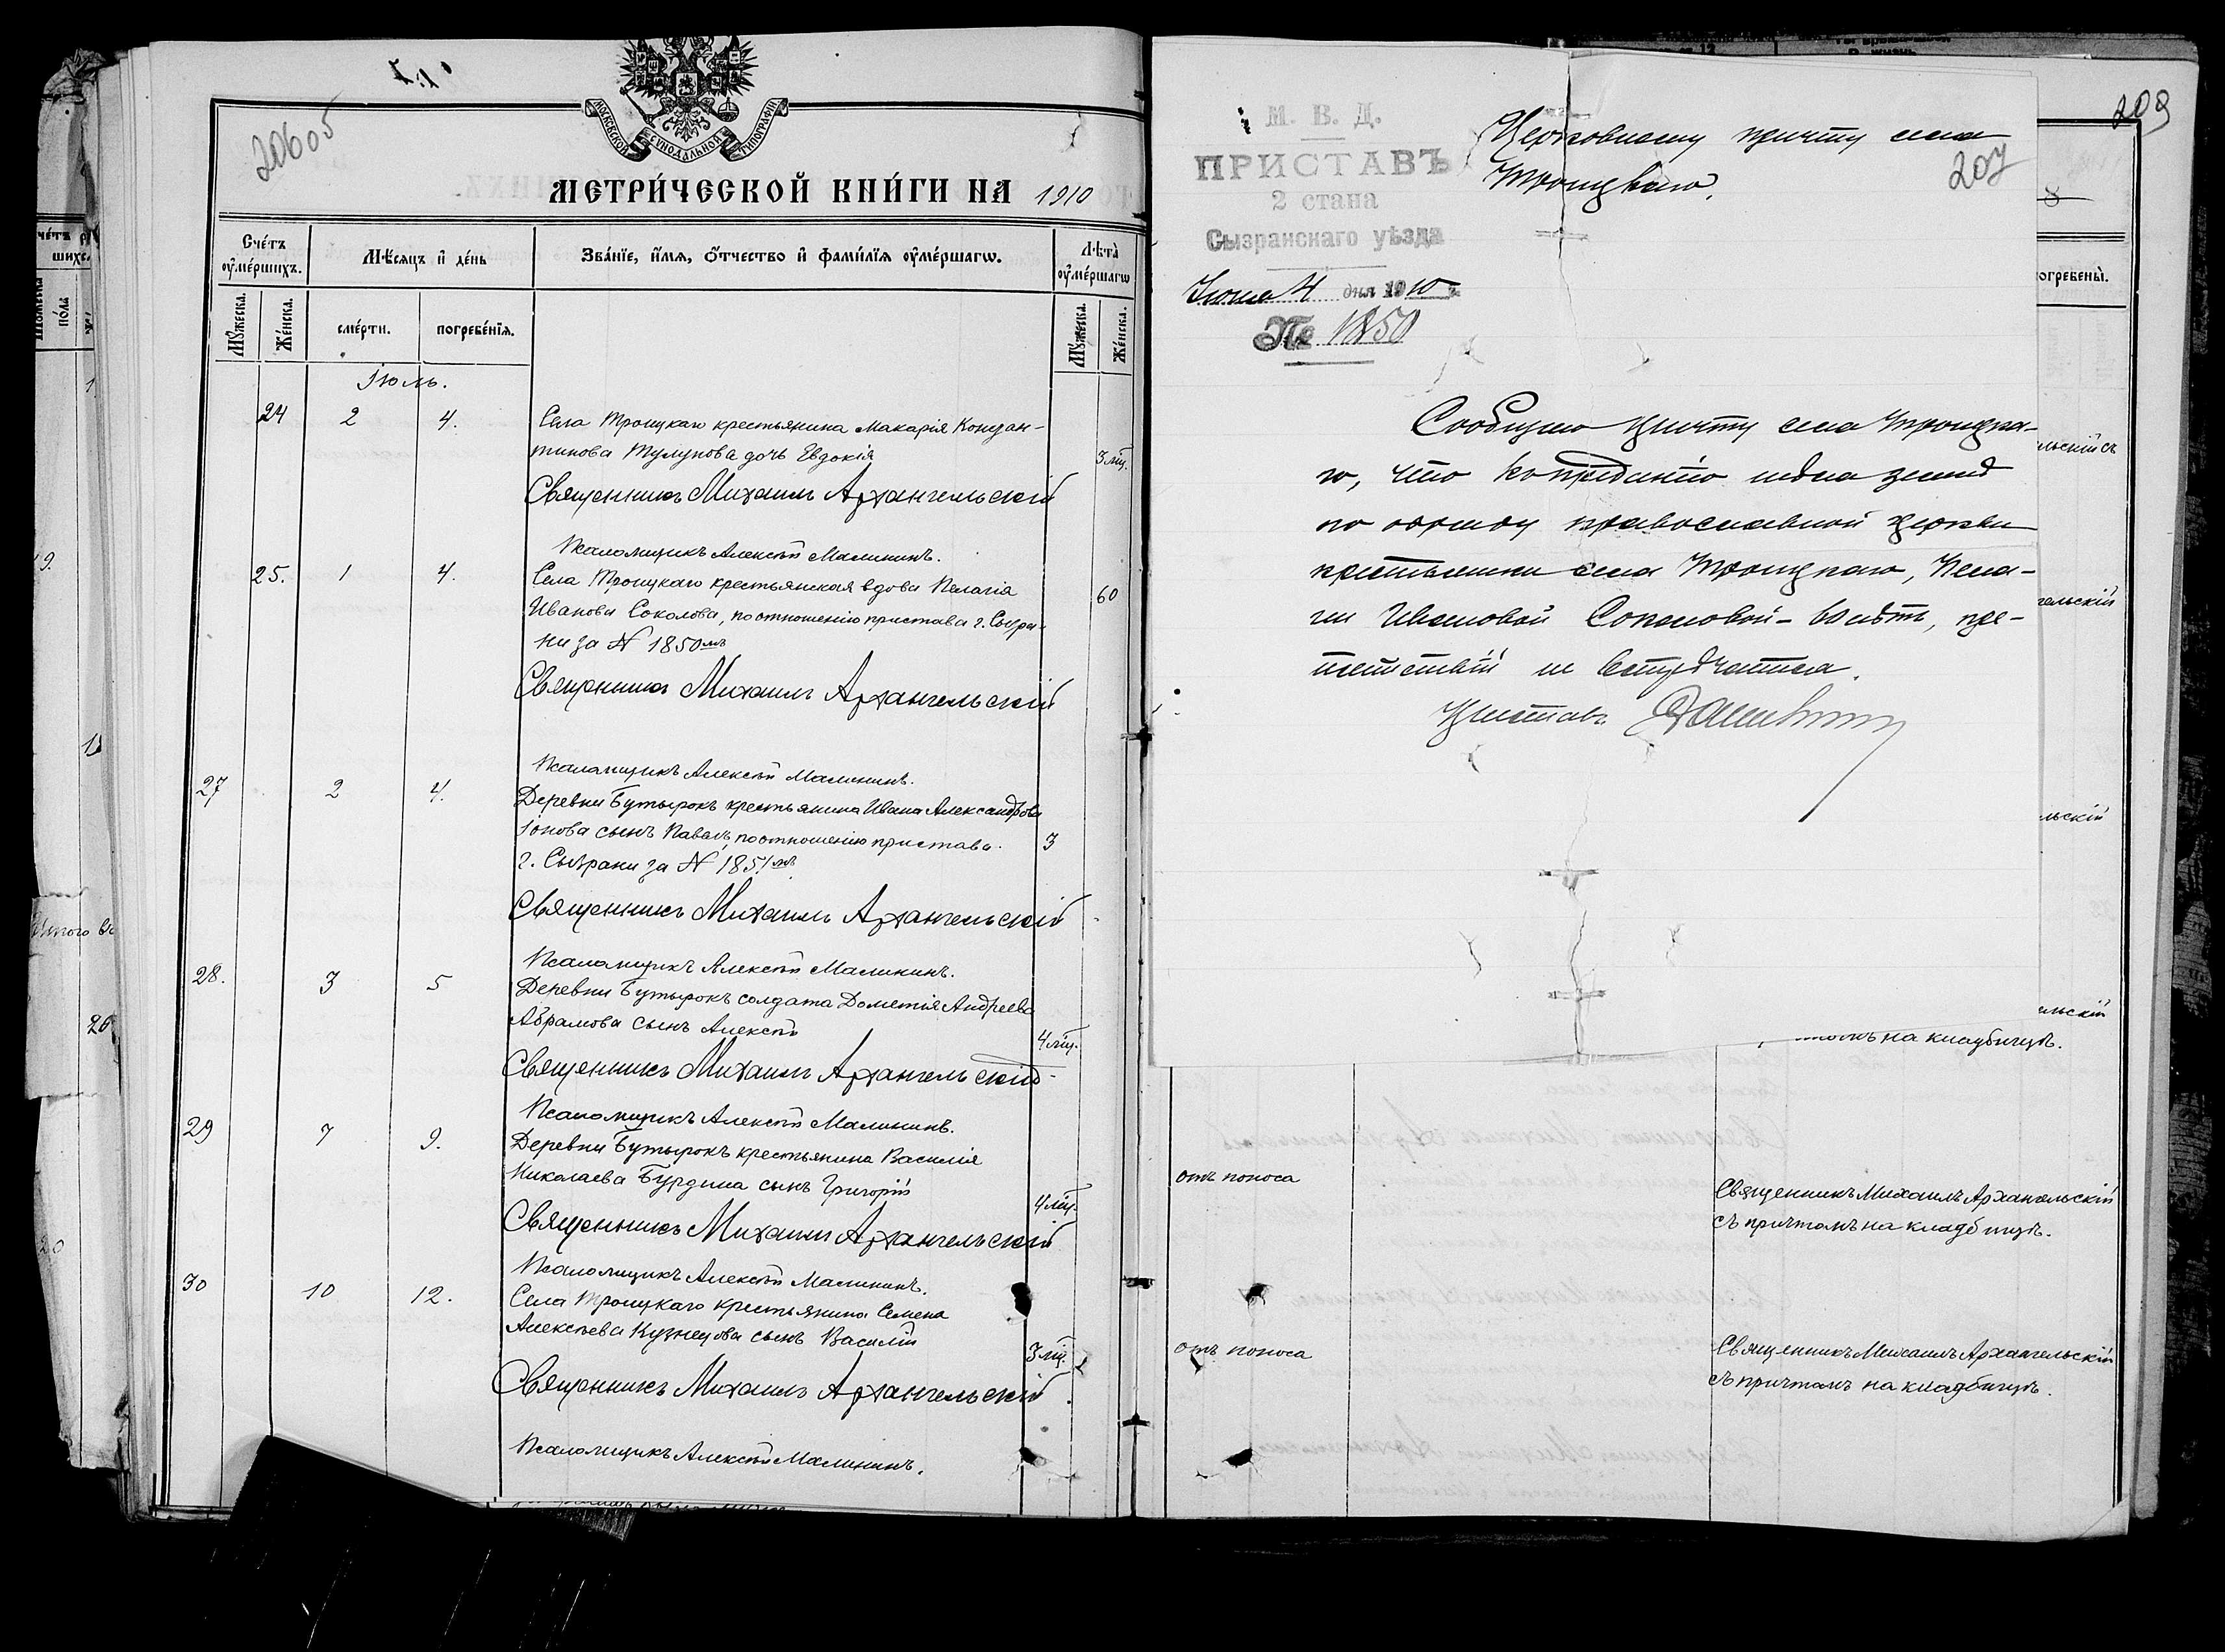 20605
МОСКОВСКОЙ СѴНОДАЛЬНОЙ ТИПОГРАФІИ
МЕТРИ́ЧЕСКОЙ КНИ́ГИ НА 1910
Сче́тъ ᲂу҆ме́ршихъ.
Мѣ́сяцъ и҆ де́нь
Зва́нїе, и҆́мѧ, ѻ҆́тчество и҆ фами́лїѧ ᲂу҆ме́ршагѡ.
Лѣ́та ᲂу҆ме́ршагѡ
Мꙋ́жеска.
Же́нска.
сме́рти.
погребе́нїѧ.
Мꙋ́жеска.
Же́нска.
Іюль.
24 2 4. Села Троицкаго крестьянина Макарія Констан-
тинова Тулупова дочь Евдокія 3 мц.
Священникъ Михаилъ Архангельскій
Псаломщикъ Алексѣй Малининъ.
25. 1 4. Села Троицкаго крестьянская вдова Пелагія 60
Иванова Соколова, по отношенію пристава г. Сызра-
ни за N 1850мъ
Священникъ Михаилъ Архангельскій
Псаломщикъ Алексѣй Малининъ.
27 2 4. Деревни Бутырокъ крестьянина Ивана Александрова
Іонова сынъ Павелъ, по отношенію пристава 3
г. Сызрани за N 1851мъ
Священникъ Михаилъ Архангельскій
Псаломщикъ Алексѣй Малининъ.
28. 3 5 Деревни Бутырокъ солдата Дометія Андреева
Абрамова сынъ Алексѣй 4 мц.
Священникъ Михаилъ Архангельскій
Псаломщикъ Алексѣй Малининъ.
29 7 9. Деревни Бутырокъ крестьянина Василія
Николаева Бурдина сынъ Григорій 4 мц.
Священникъ Михаилъ Архангельскій
Псаломщикъ Алексѣй Малининъ.
30 10 12. Села Троицкаго крестьянина Семена
Алексѣева Кузнецова сынъ Василій 3 мц.
Священникъ Михаилъ Архангельскій
Псаломщикъ Алексѣй Малининъ.
209
207
М. В. Д.
ПРИСТАВЪ
2 стана
Сызранскаго уѣзда
4 дня 1910
№ 1850
Церковному причту села
Троицкаго.
Сообщаю причту села Троицка-
го, что къ преданію тѣла землѣ
по обряду православной церкви
крестьянки села Троицкаго, Пела-
гіи Ивановой Соколовой - 60 лѣтъ, пре-
пятствій не встрѣчается.
Приставъ
огребены̀.
льскій съ
гельскій
льскій
ельскій
на кладбищѣ.
отъ поноса
Священникъ Михаилъ Архангельскій
съ причтомъ на кладбищѣ.
отъ поноса
Священникъ Михаилъ Архангельскій
съ причтомъ на кладбищѣ.